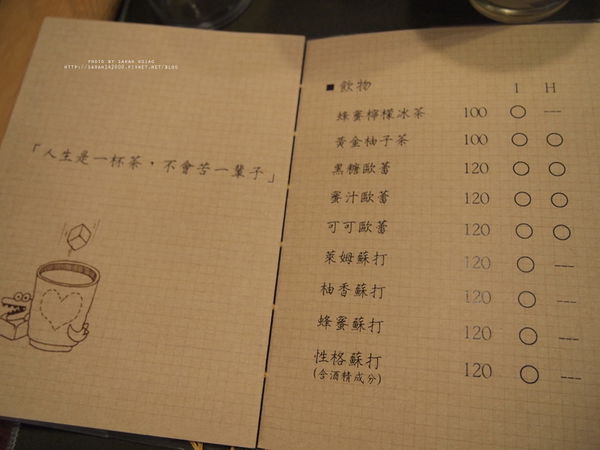 PHOTO BY SARAH HSIAO
HTTP://SARAH242000.PIXNET.NET/BLOG
「人生是一杯茶，不會苦一輩子」
■飲物 I H
蜂蜜檸檬冰茶 100 ○ ---
黃金柚子茶 100 ○ ○
黑糖歐蕾 120 ○ ○
蜜汁歐蕾 120 ○ ○
可可歐蕾 120 ○ ○
萊姆蘇打 120 ○ ---
柚香蘇打 120 ○ ---
蜂蜜蘇打 120 ○ ---
性格蘇打 120 ○ ---
(含酒精成分)